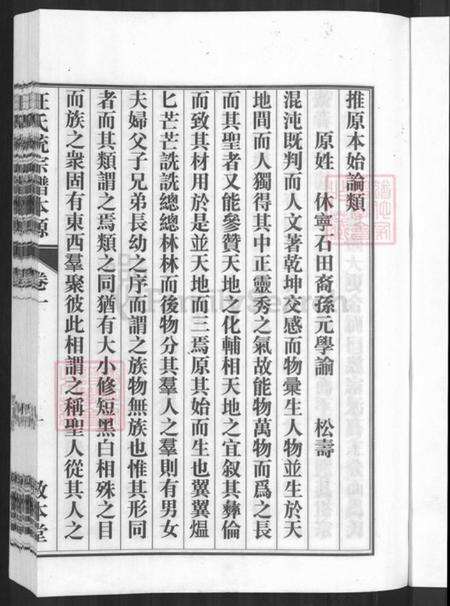 推原本始論類
原姓　休寧石田裔孫元學諭　松壽
混沌既判而人文著乾坤交感而物彙生人物並生於天
地間而人獨得其中正靈秀之氣故能物萬物而爲之長
而其聖者又能參贊天地之化輔相天地之宜叙其彝倫
而致其材用於是並天地而三焉原其始而生也翼翼熅
匕芒芒詵詵總總林林而後物分其羣人之羣則有男女
夫婦父子兄弟長幼之序而謂之族物無族也惟其形同
者而其類謂之焉類之同猶有大小修短黑白相殊之目
而族之衆固有東西羣聚彼此相謂之稱聖人從其人之
汪氏統宗譜本源
卷一
一
敦本堂